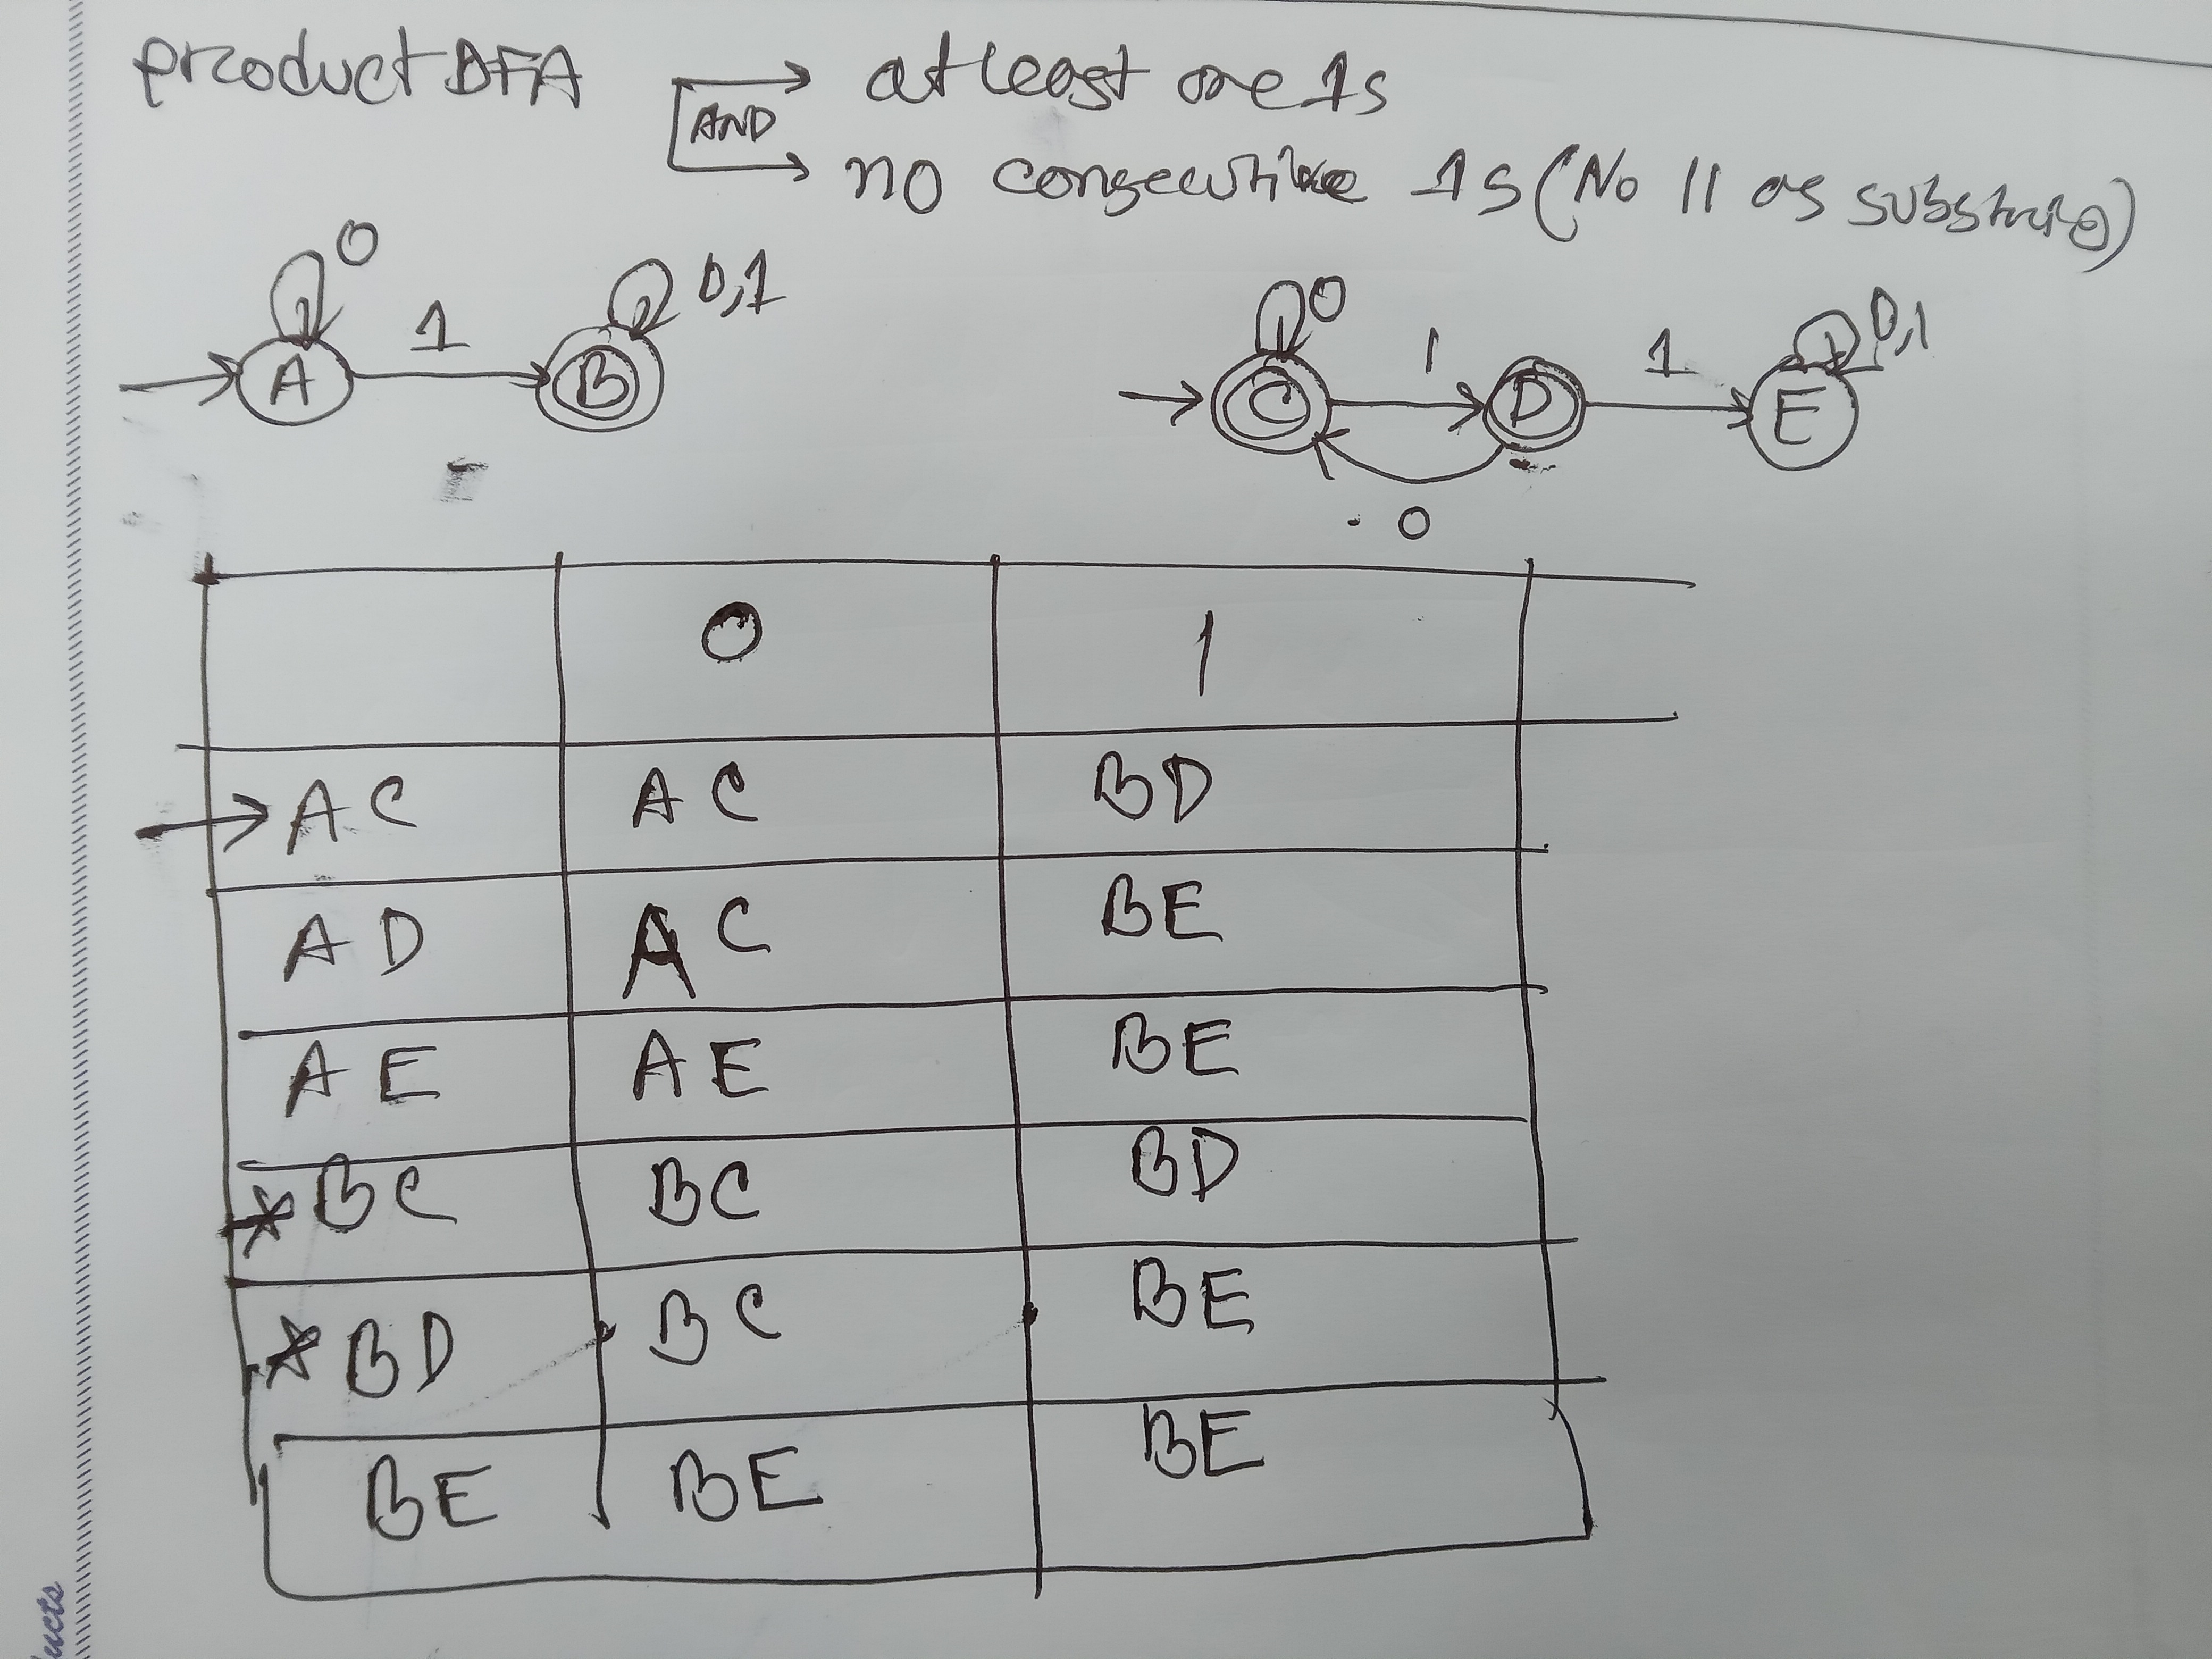 product DFA → at least one 1s
AND
→ no consecutive 1s (No 11 as substring)
0 0,1 0 0,1
1 1 1
A B C D E
0
0 1
→ AC AC BD
AD AC BE
AE AE BE
* BC BC BD
* BD BC BE
BE BE BE
ducts